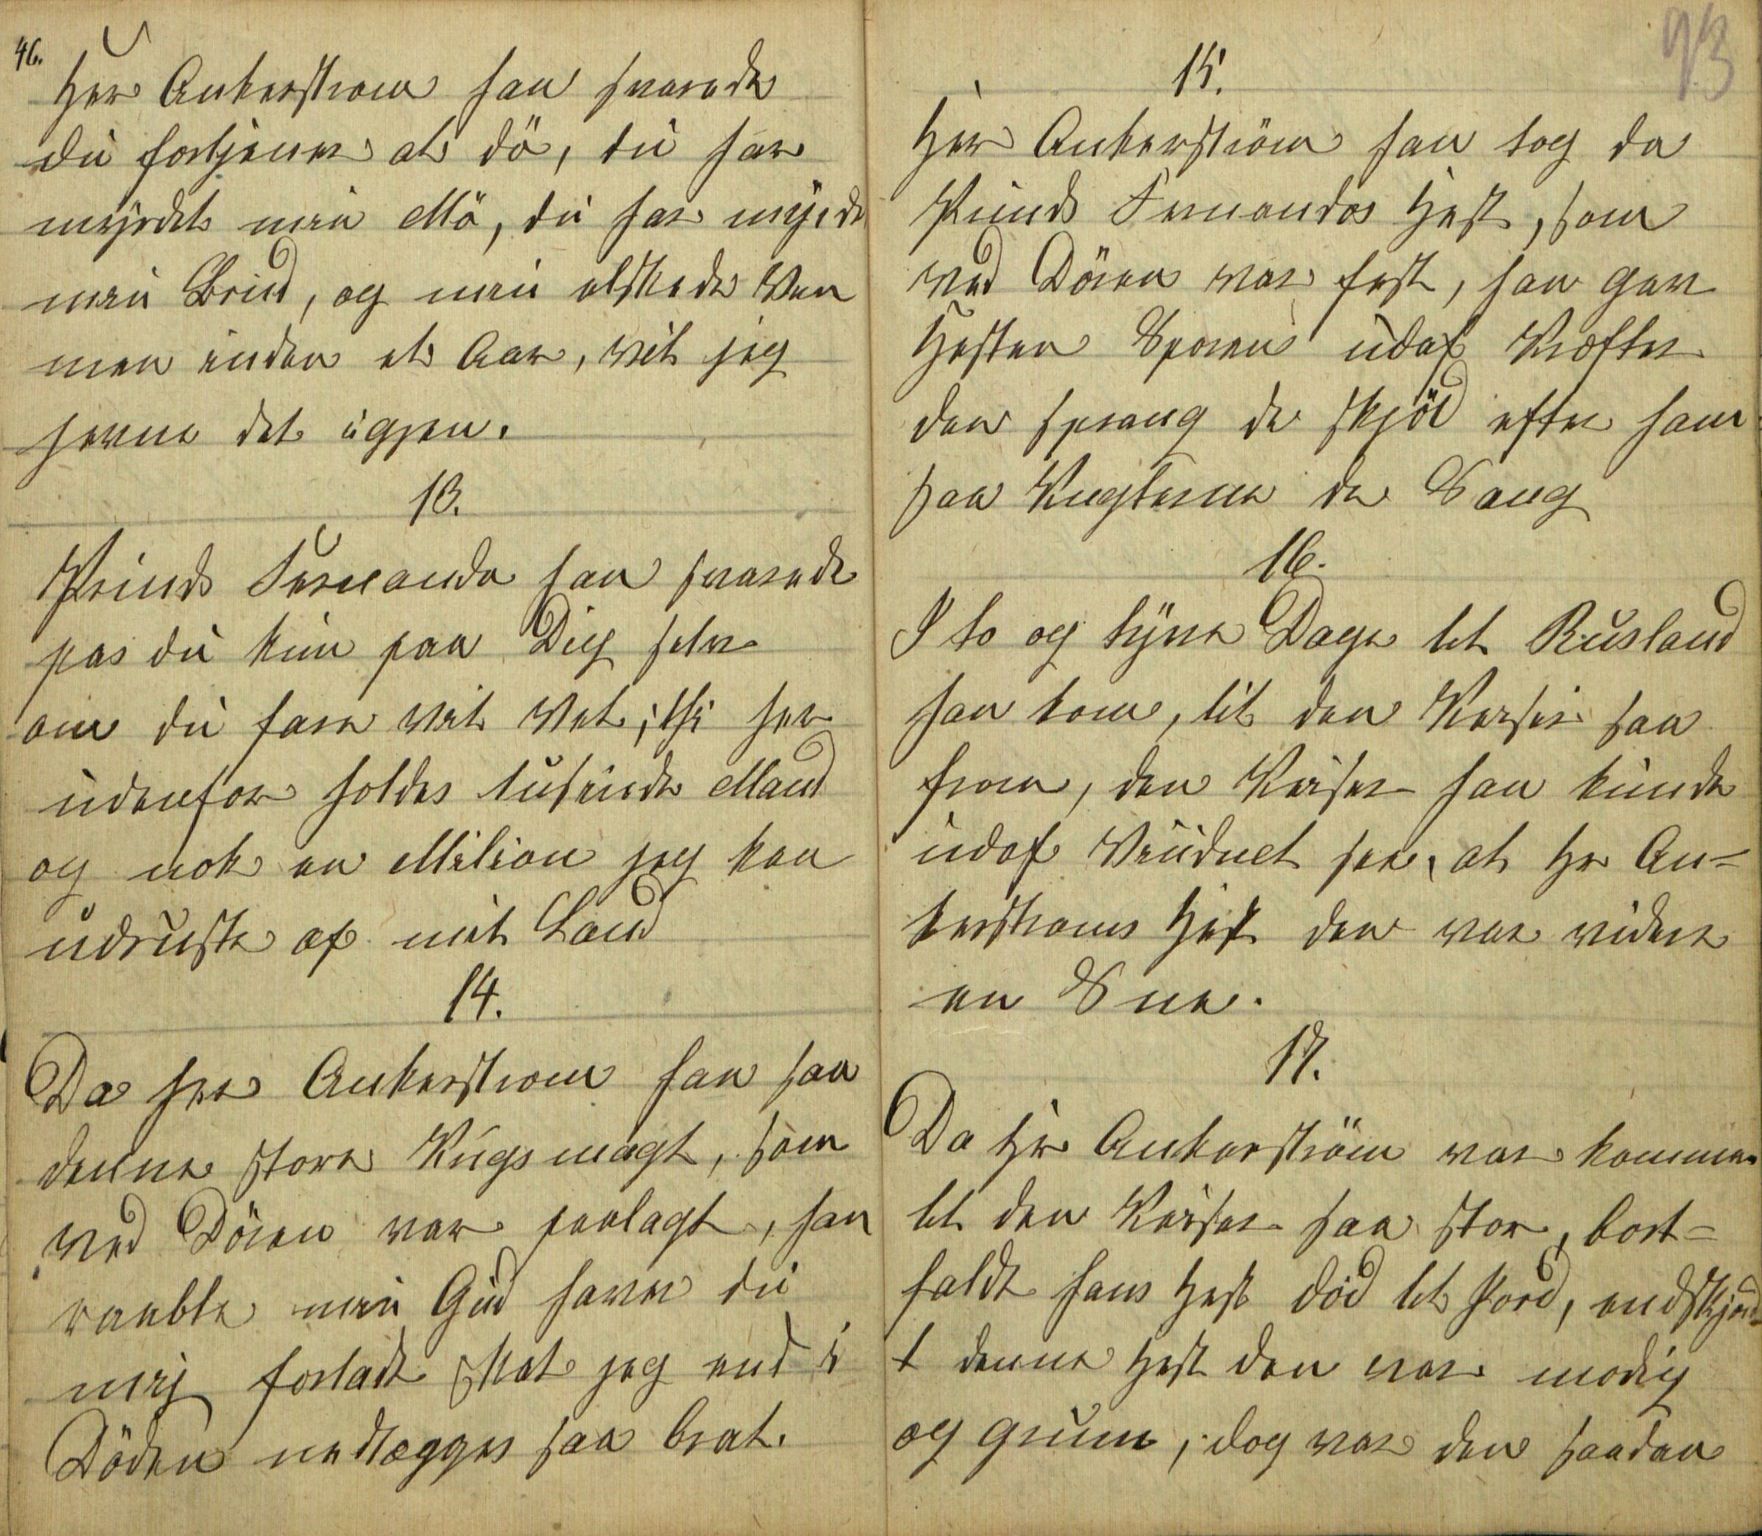 46.
Her Ankerstrom han svarede
du fortjener at dö, du har
myrdet min Mö, du har myrdt
min Brud, og min elskede Ven
men inden et Aar, vil jeg
hevne det igjen.
13.
Prinds Fernando han svarede
pas du kun paa Dig selv
om du fare vil vel, thi her
udenfor holdes tusinde Mand
og nok en Milion jeg kan
udruste af mit Land
14.
Da her Ankerstrom han saa
denne store Krigsmagt, som
ved Dören var paalagt, han
raabte min Gud haver du
mig forladt skal jeg end i
Döden nedlægges saa brat.
93
15.
Her Ankerström han tog da
Prinds Fernandos Hest, som
ved Dören var fest, han gav
Hesten Sporen udaf Kræfter
den sprang de skjöd efter ham
saa Kuglerne de Sang
16.
I to og tyve Dage til Rusland
han kom, til den Keiser saa
from, den Keiser han kunde
udaf Vinduet see, at Hr An-
kerstroms Hest den var videre
en Sne.
17.
Da Hr Ankerström var kommen
til den Keiser saa stor, bort-
faldt hans Hest död til Jord, endskjönd-
t denne Hest den var modig
og grum, dog var den saadan